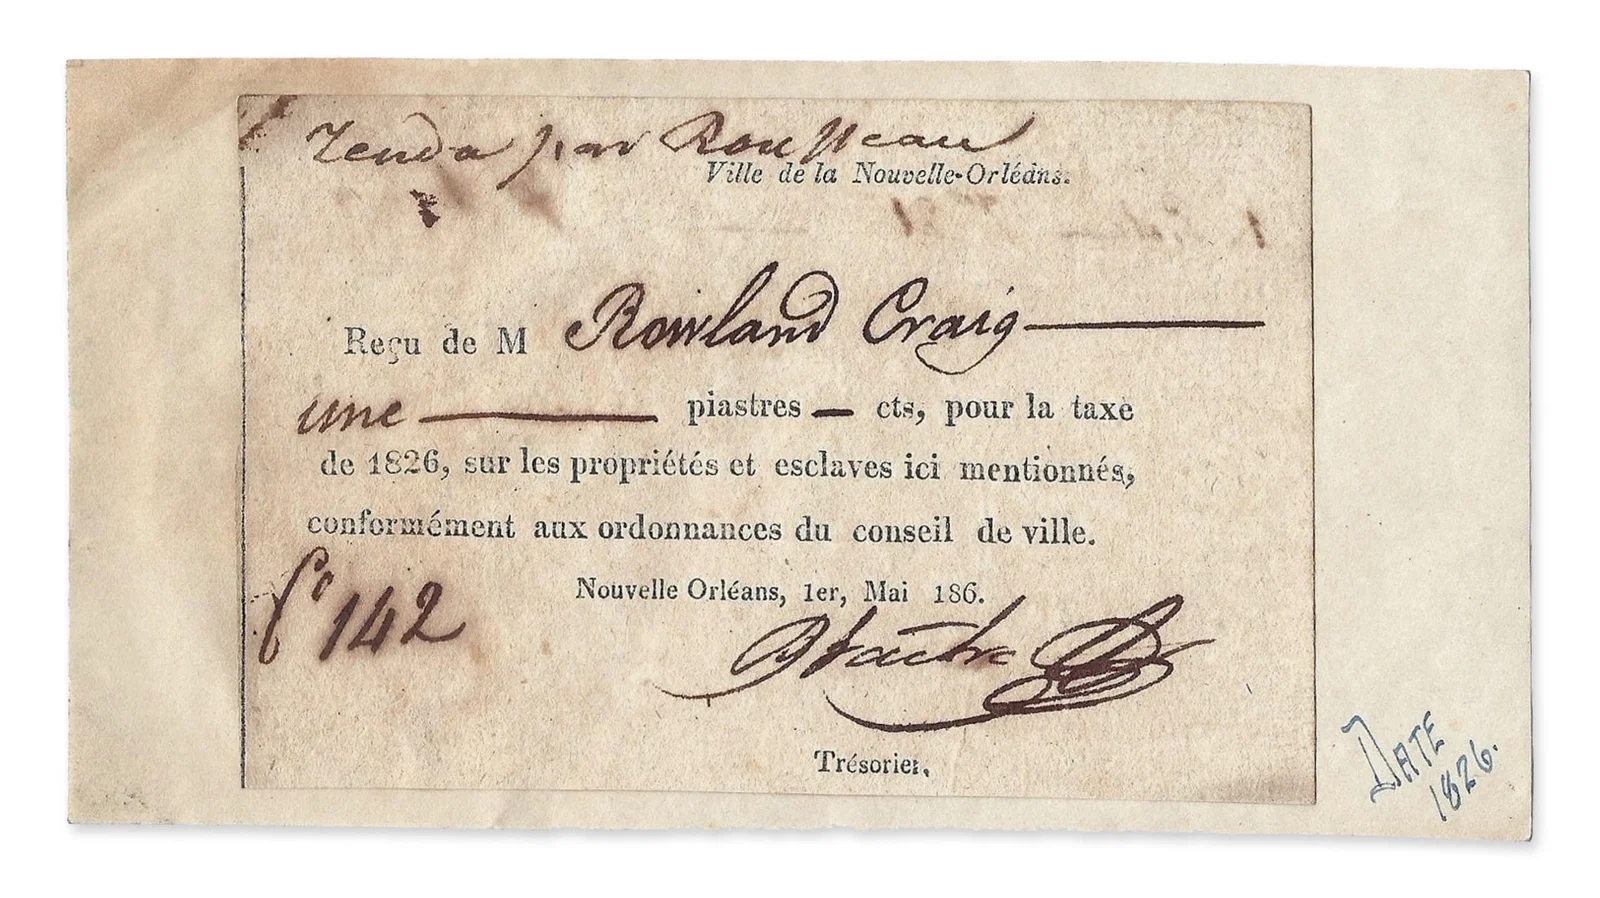 Venda par Rousseau
Ville de la Nouvelle-Orléans.
Reçu de M Rowland Craig
une piastres — cts, pour la taxe
de 1826, sur les propriétés et esclaves ici mentionnés,
conformément aux ordonnances du conseil de ville.
Nouvelle Orléans, 1er, Mai 186.
fo 142
Trésorier.
DATE
1826.